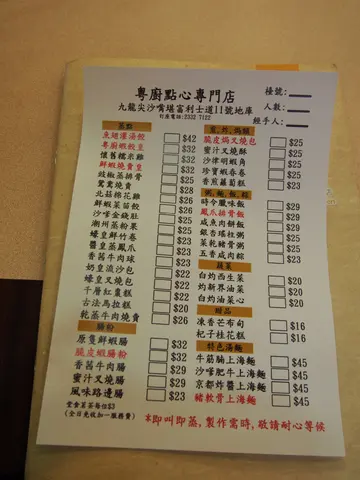 粵廚點心專門店
九龍尖沙嘴堪富利士道11號地庫
訂座電話:2332 7122
檯號:
人數:
經手人:
蒸點
魚翅灌湯餃 $42
粵廚蝦餃皇 $32
懷舊糯米雞
鮮蝦燒賣皇
豉椒蒸排骨
鴛鴦燒賣
北菇棉花雞
鮮蝦菜苗餃
沙嗲金錢肚
潮州蒸粉果
蠔皇鮮竹卷
醬皇蒸鳳爪
香茜牛肉球
奶皇流沙包
蠔皇叉燒包
千層紅棗糕
古法馬拉糕
乾蒸牛肉燒賣 $26
腸粉
原隻鮮蝦腸 $32
脆皮蝦腸粉 $32
香茜牛肉腸 $29
蜜汁叉燒腸 $29
風味路邊腸 $23
堂食茗茶每位$3
(全日免收加一服務費)
煎、炸、焗類
脆皮焗叉燒包 $25
蜜汁叉燒酥 $25
沙律明蝦角 $25
珍寶蝦春卷 $25
香煎蘿蔔糕 $23
粥、飯、粽
時令臘味飯 $29
鳳爪排骨飯 $29
咸魚肉餅飯 $29
銀杏瑤柱粥 $23
菜乾豬骨粥 $23
五香咸肉粽 $23
蔬菜
白灼西生菜 $20
灼新界油菜 $20
白灼油菜心 $20
甜品
凍香芒布甸 $16
杞子桂花糕 $16
特色湯麵
牛筋腩上海麵 $45
沙嗲肥牛上海麵 $45
京都炸醬上海麵 $45
豬軟骨上海麵 $45
*即叫即蒸,製作需時,敬請耐心等候